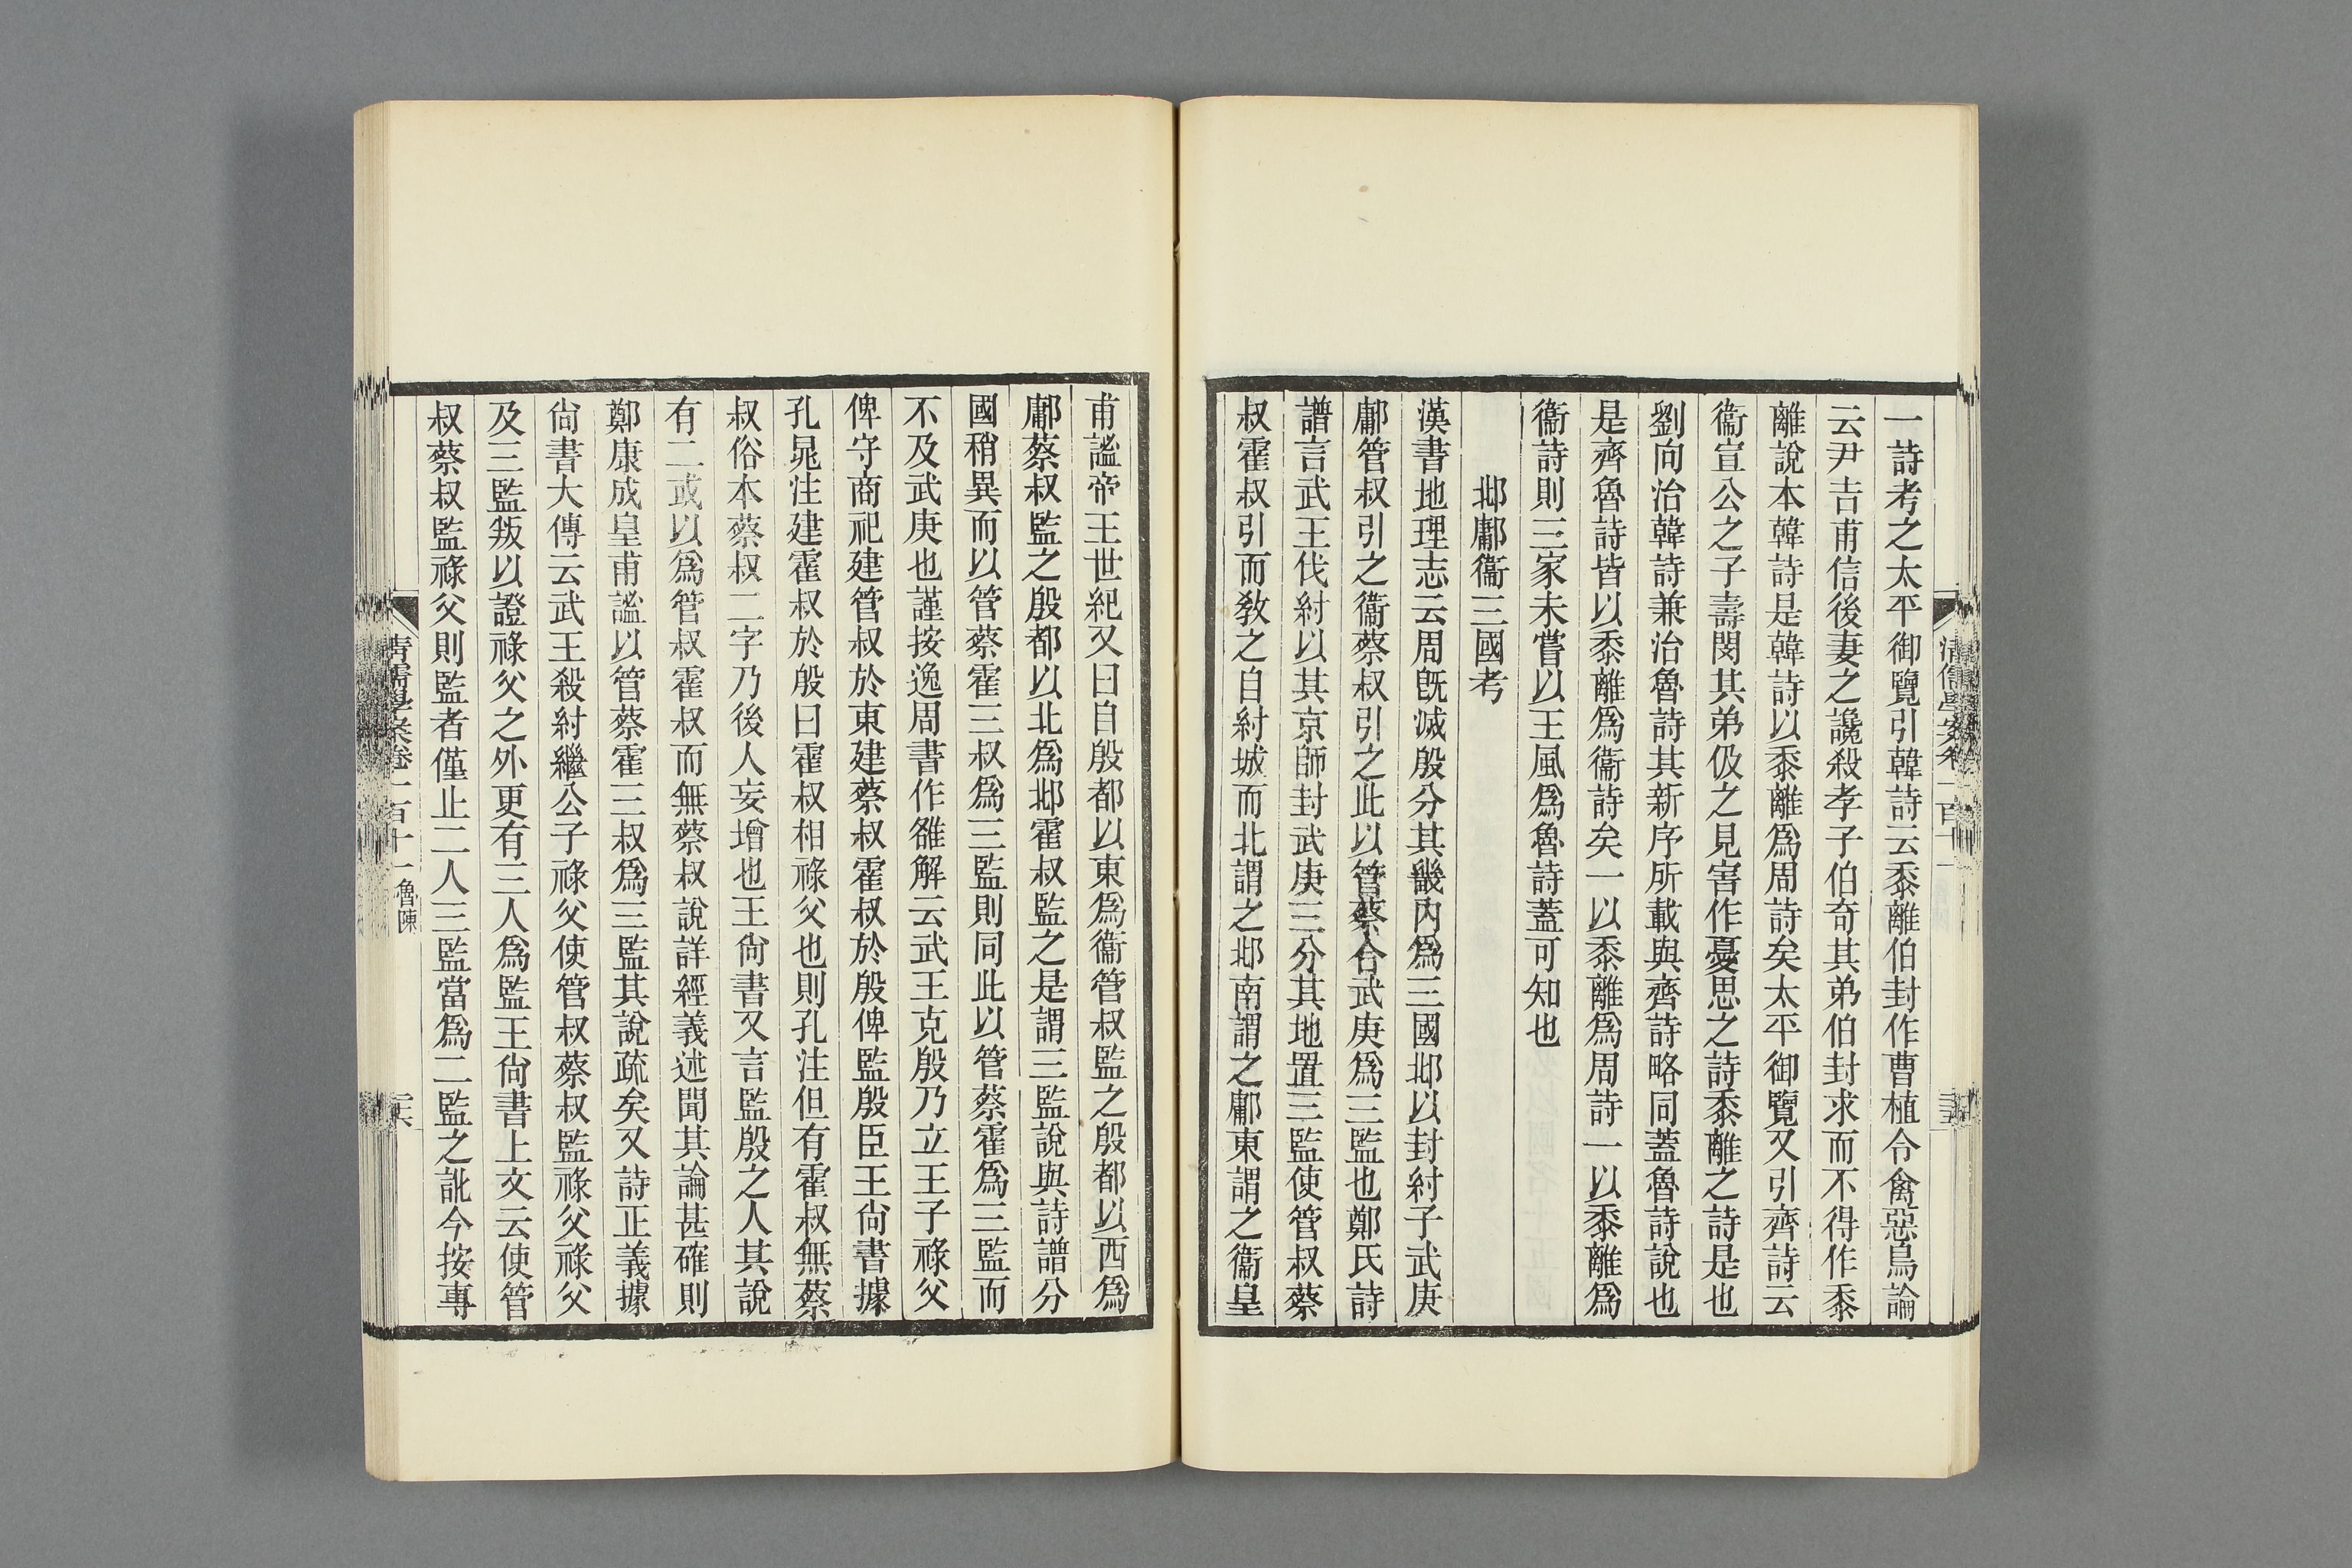 一詩考之太平御覽引韓詩云黍離伯封作曹植令禽惡鳥論
云尹吉甫信後妻之讒殺孝子伯奇其弟伯封求而不得作黍
離說本韓詩是韓詩以黍離爲周詩矣太平御覽又引齊詩云
衞宣公之子壽閔其弟伋之見害作憂思之詩黍離之詩是也
劉向治韓詩兼治魯詩其新序所載與齊詩略同蓋魯詩說也
是齊魯詩皆以黍離爲衞詩矣一以黍離爲周詩一以黍離爲
衞詩則三家未嘗以王風爲魯詩蓋可知也
邶鄘衞三國考
漢書地理志云周旣滅殷分其畿內爲三國邶以封紂子武庚
鄘管叔引之衞蔡叔引之此以管蔡合武庚爲三監也鄭氏詩
譜言武王伐紂以其京師封武庚三分其地置三監使管叔蔡
叔霍叔引而敎之自紂城而北謂之邶南謂之鄘東謂之衞皇
甫謐帝王世紀又曰自殷都以東爲衞管叔監之殷都以西爲
鄘蔡叔監之殷都以北爲邶霍叔監之是謂三監說與詩譜分
國稍異而以管蔡霍三叔爲三監則同此以管蔡霍爲三監而
不及武庚也謹按逸周書作雒解云武王克殷乃立王子祿父
俾守商祀建管叔於東建蔡叔霍叔於殷俾監殷臣王尙書據
孔晁注建霍叔於殷曰霍叔相祿父也則孔注但有霍叔無蔡
叔俗本蔡叔二字乃後人妄增也王尙書又言監殷之人其說
有二或以爲管叔霍叔而無蔡叔說詳經義述聞其論甚確則
鄭康成皇甫謐以管蔡霍三叔爲三監其說疏矣又詩正義據
尙書大傳云武王殺紂繼公子祿父使管叔蔡叔監祿父祿父
及三監叛以證祿父之外更有三人爲監王尙書上文云使管
叔蔡叔監祿父則監者僅止二人三監當爲二監之訛今按專
清儒學案卷一百十一 魯陳
二六